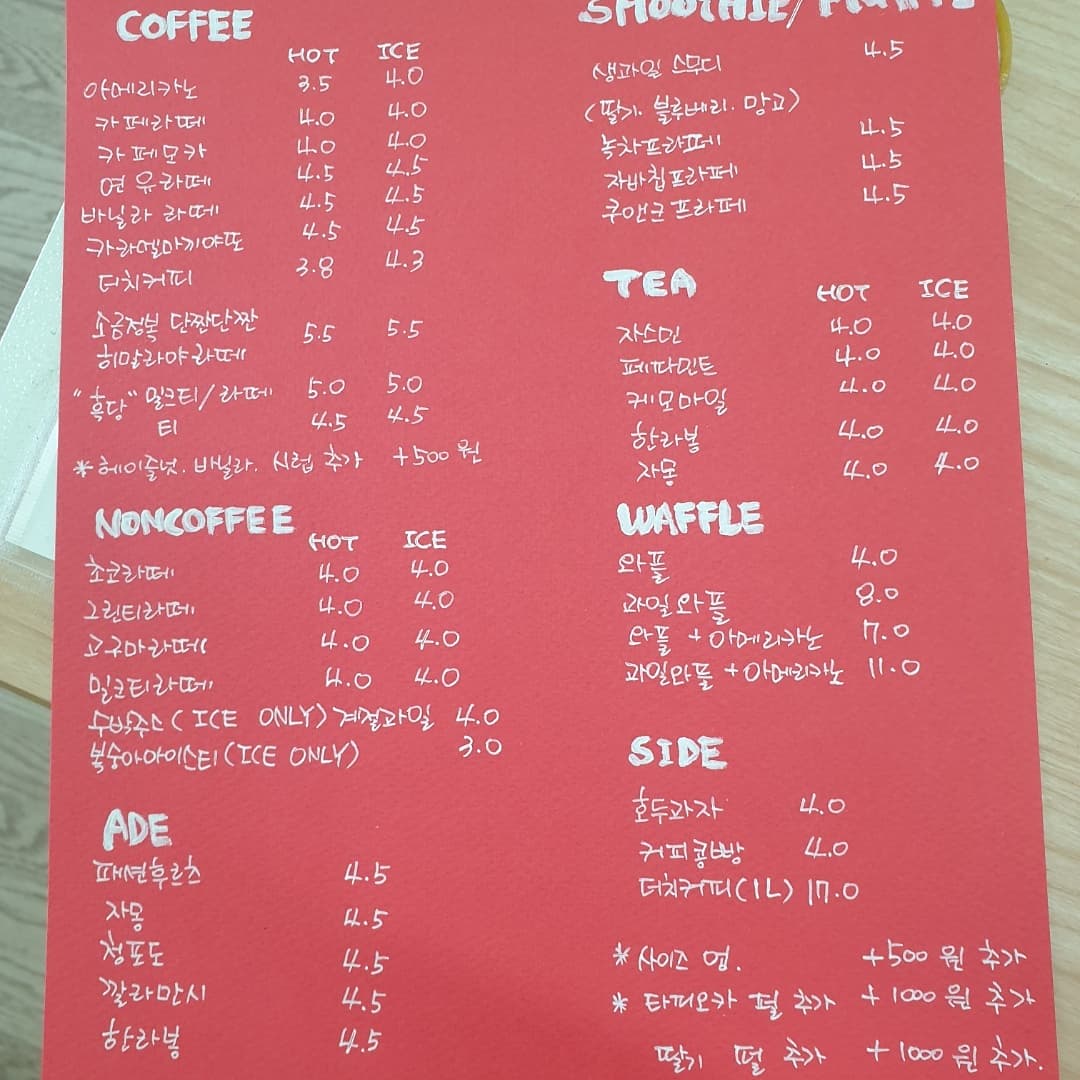 COFFEE
HOT ICE
아메리카노 3.5 4.0
카페라떼 4.0 4.0
카페모카 4.0 4.0
연유라떼 4.5 4.5
바닐라 라떼 4.5 4.5
카라멜마끼야또 4.5 4.5
더치커피 3.8 4.3
소금정복 단짠단짠
히말라야 라떼 5.5 5.5
"흑당" 밀크티/라떼 5.0 5.0
티 4.5 4.5
*헤이즐넛. 바닐라. 시럽 추가 +500원
NONCOFFEE
HOT ICE
초코라떼 4.0 4.0
그린티라떼 4.0 4.0
고구마라떼 4.0 4.0
밀크티라떼 4.0 4.0
수박주스(ICE ONLY)계절과일 4.0
복숭아아이스티(ICE ONLY) 3.0
ADE
패션후르츠 4.5
자몽 4.5
청포도 4.5
깔라만시 4.5
한라봉 4.5
SMOOTHIE/
생과일 스무디 4.5
(딸기. 블루베리. 망고)
녹차프라페 4.5
자바칩프라페 4.5
쿠앤크프라페 4.5
TEA
HOT ICE
자스민 4.0 4.0
페파민트 4.0 4.0
케모마일 4.0 4.0
한라봉 4.0 4.0
자몽 4.0 4.0
WAFFLE
와플 4.0
과일와플 8.0
와플 +아메리카노 7.0
과일와플 +아메리카노 11.0
SIDE
호두과자 4.0
커피콩빵 4.0
더치커피(1L) 17.0
*사이즈 업. +500원 추가
* 타피오카 펄 추가 +1000원 추가
딸기 펄 추가 +1000원 추가.